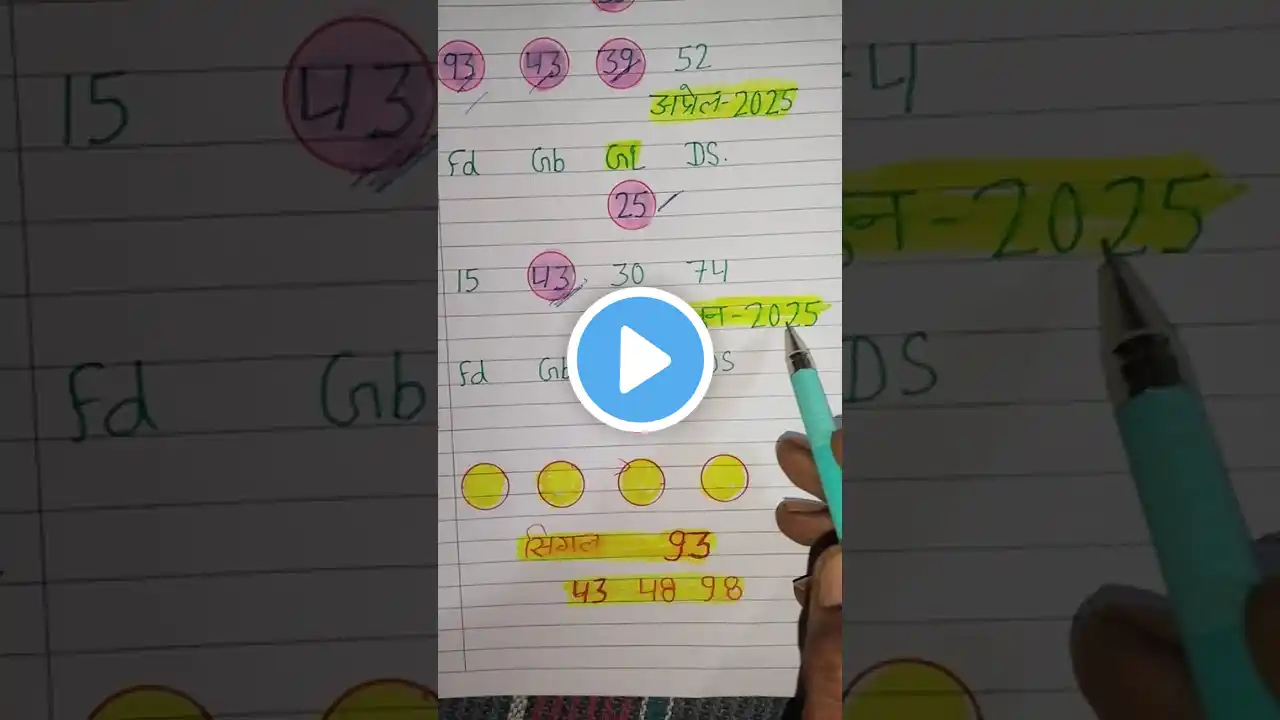 93 43 39 52
अप्रेल-2025
Fd Gb GL DS.
25
15 43 30 74
-2025
Fd Gb DS
सिगल 93
43 48 98